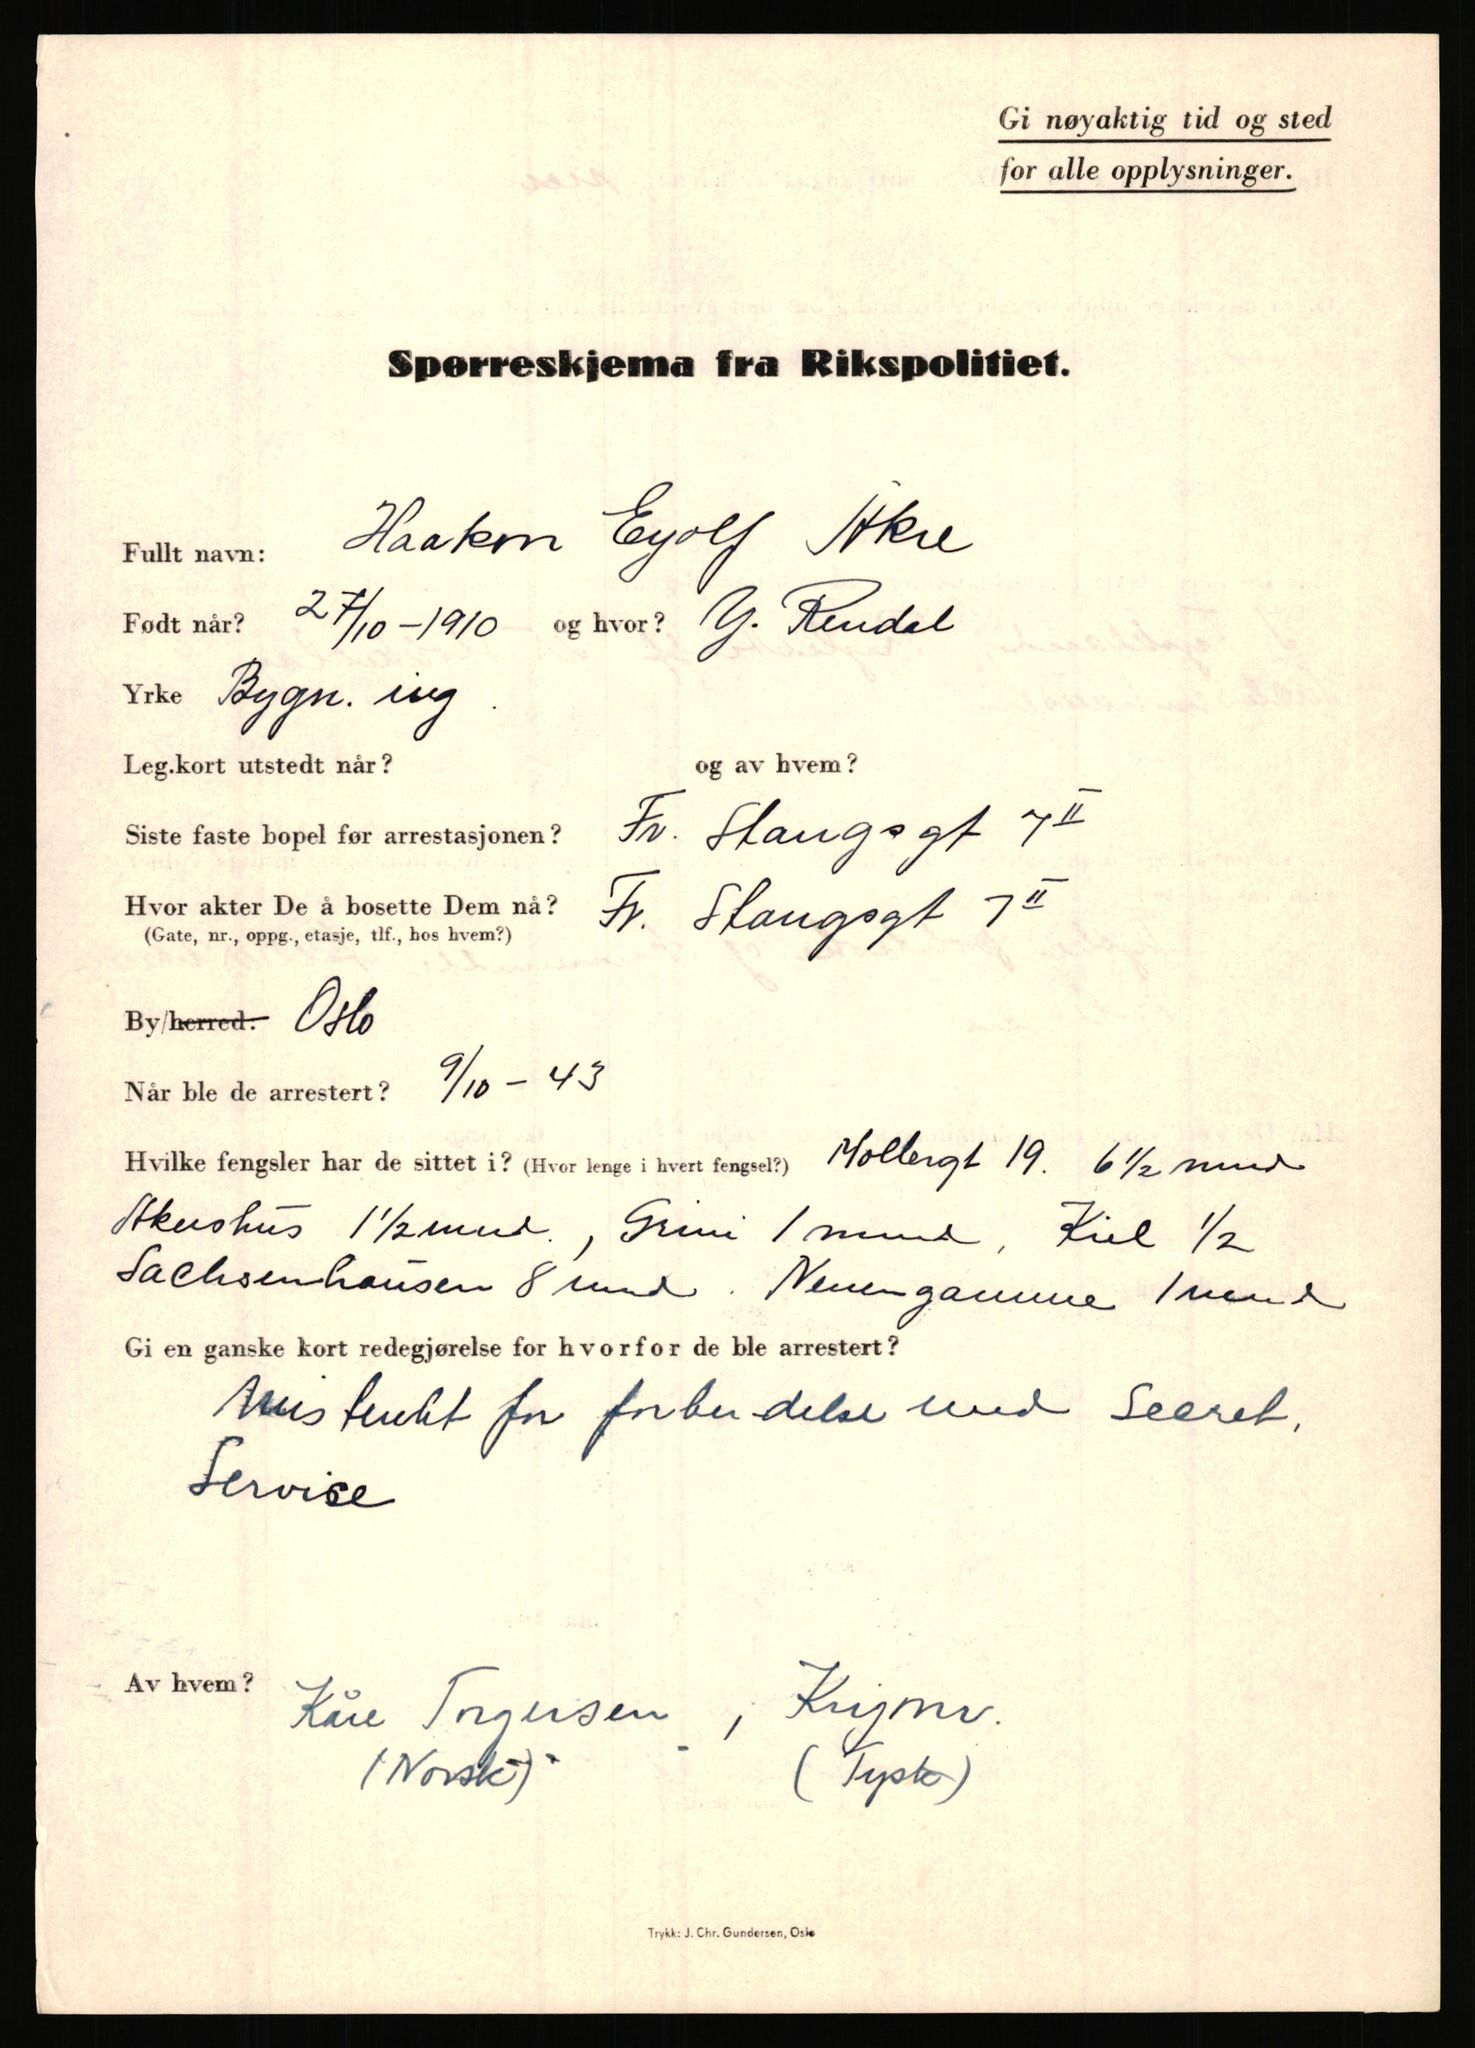 Gi nøyaktig tid og sted
for alle opplysninger.
Spørreskjema fra Rikspolitiet.
Fullt navn: Haakon Eyolf Åkre
Født når? 27/10-1910 og hvor? Y. Rendal
Yrke Bygn. ing.
Leg.kort utstedt når? og av hvem?
Siste faste bopel før arrestasjonen? Fr. Stangsgt 7 II
Hvor akter De å bosette Dem nå? Fr. Stangsgt 7 II
(Gate, nr., oppg., etasje, tlf., hos hvem?)
By/herred: Oslo
Når ble de arrestert? 9/10-43
Hvilke fengsler har de sittet i? (Hvor lenge i hvert fengsel?) Møllergt 19. 6 1/2 mnd
Akershus 1 1/2 mnd., Grini 1 mnd, Kiel 1/2
Sachsenhausen 8 mnd. Neuengamme 1 mnd
Gi en ganske kort redegjørelse for hvorfor de ble arrestert?
Mistenkt for forbindelse med Secret,
Service
Av hvem? Kåre Torgersen,
(Norsk) (Tysk)
Trykk: J. Chr. Gundersen, Oslo